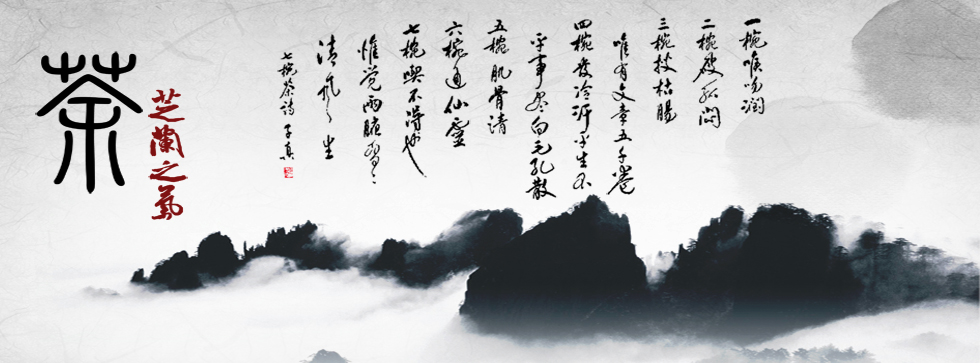 一椀喉吻潤
二椀破孤悶
三椀搜枯腸
唯有文章五千卷
四椀發輕汗平生不
平事盡向毛孔散
五椀肌骨清
六椀通仙靈
七椀喫不得也
惟覺兩腋習々
清風生
七椀茶詩 子真
茶
芝蘭之氣